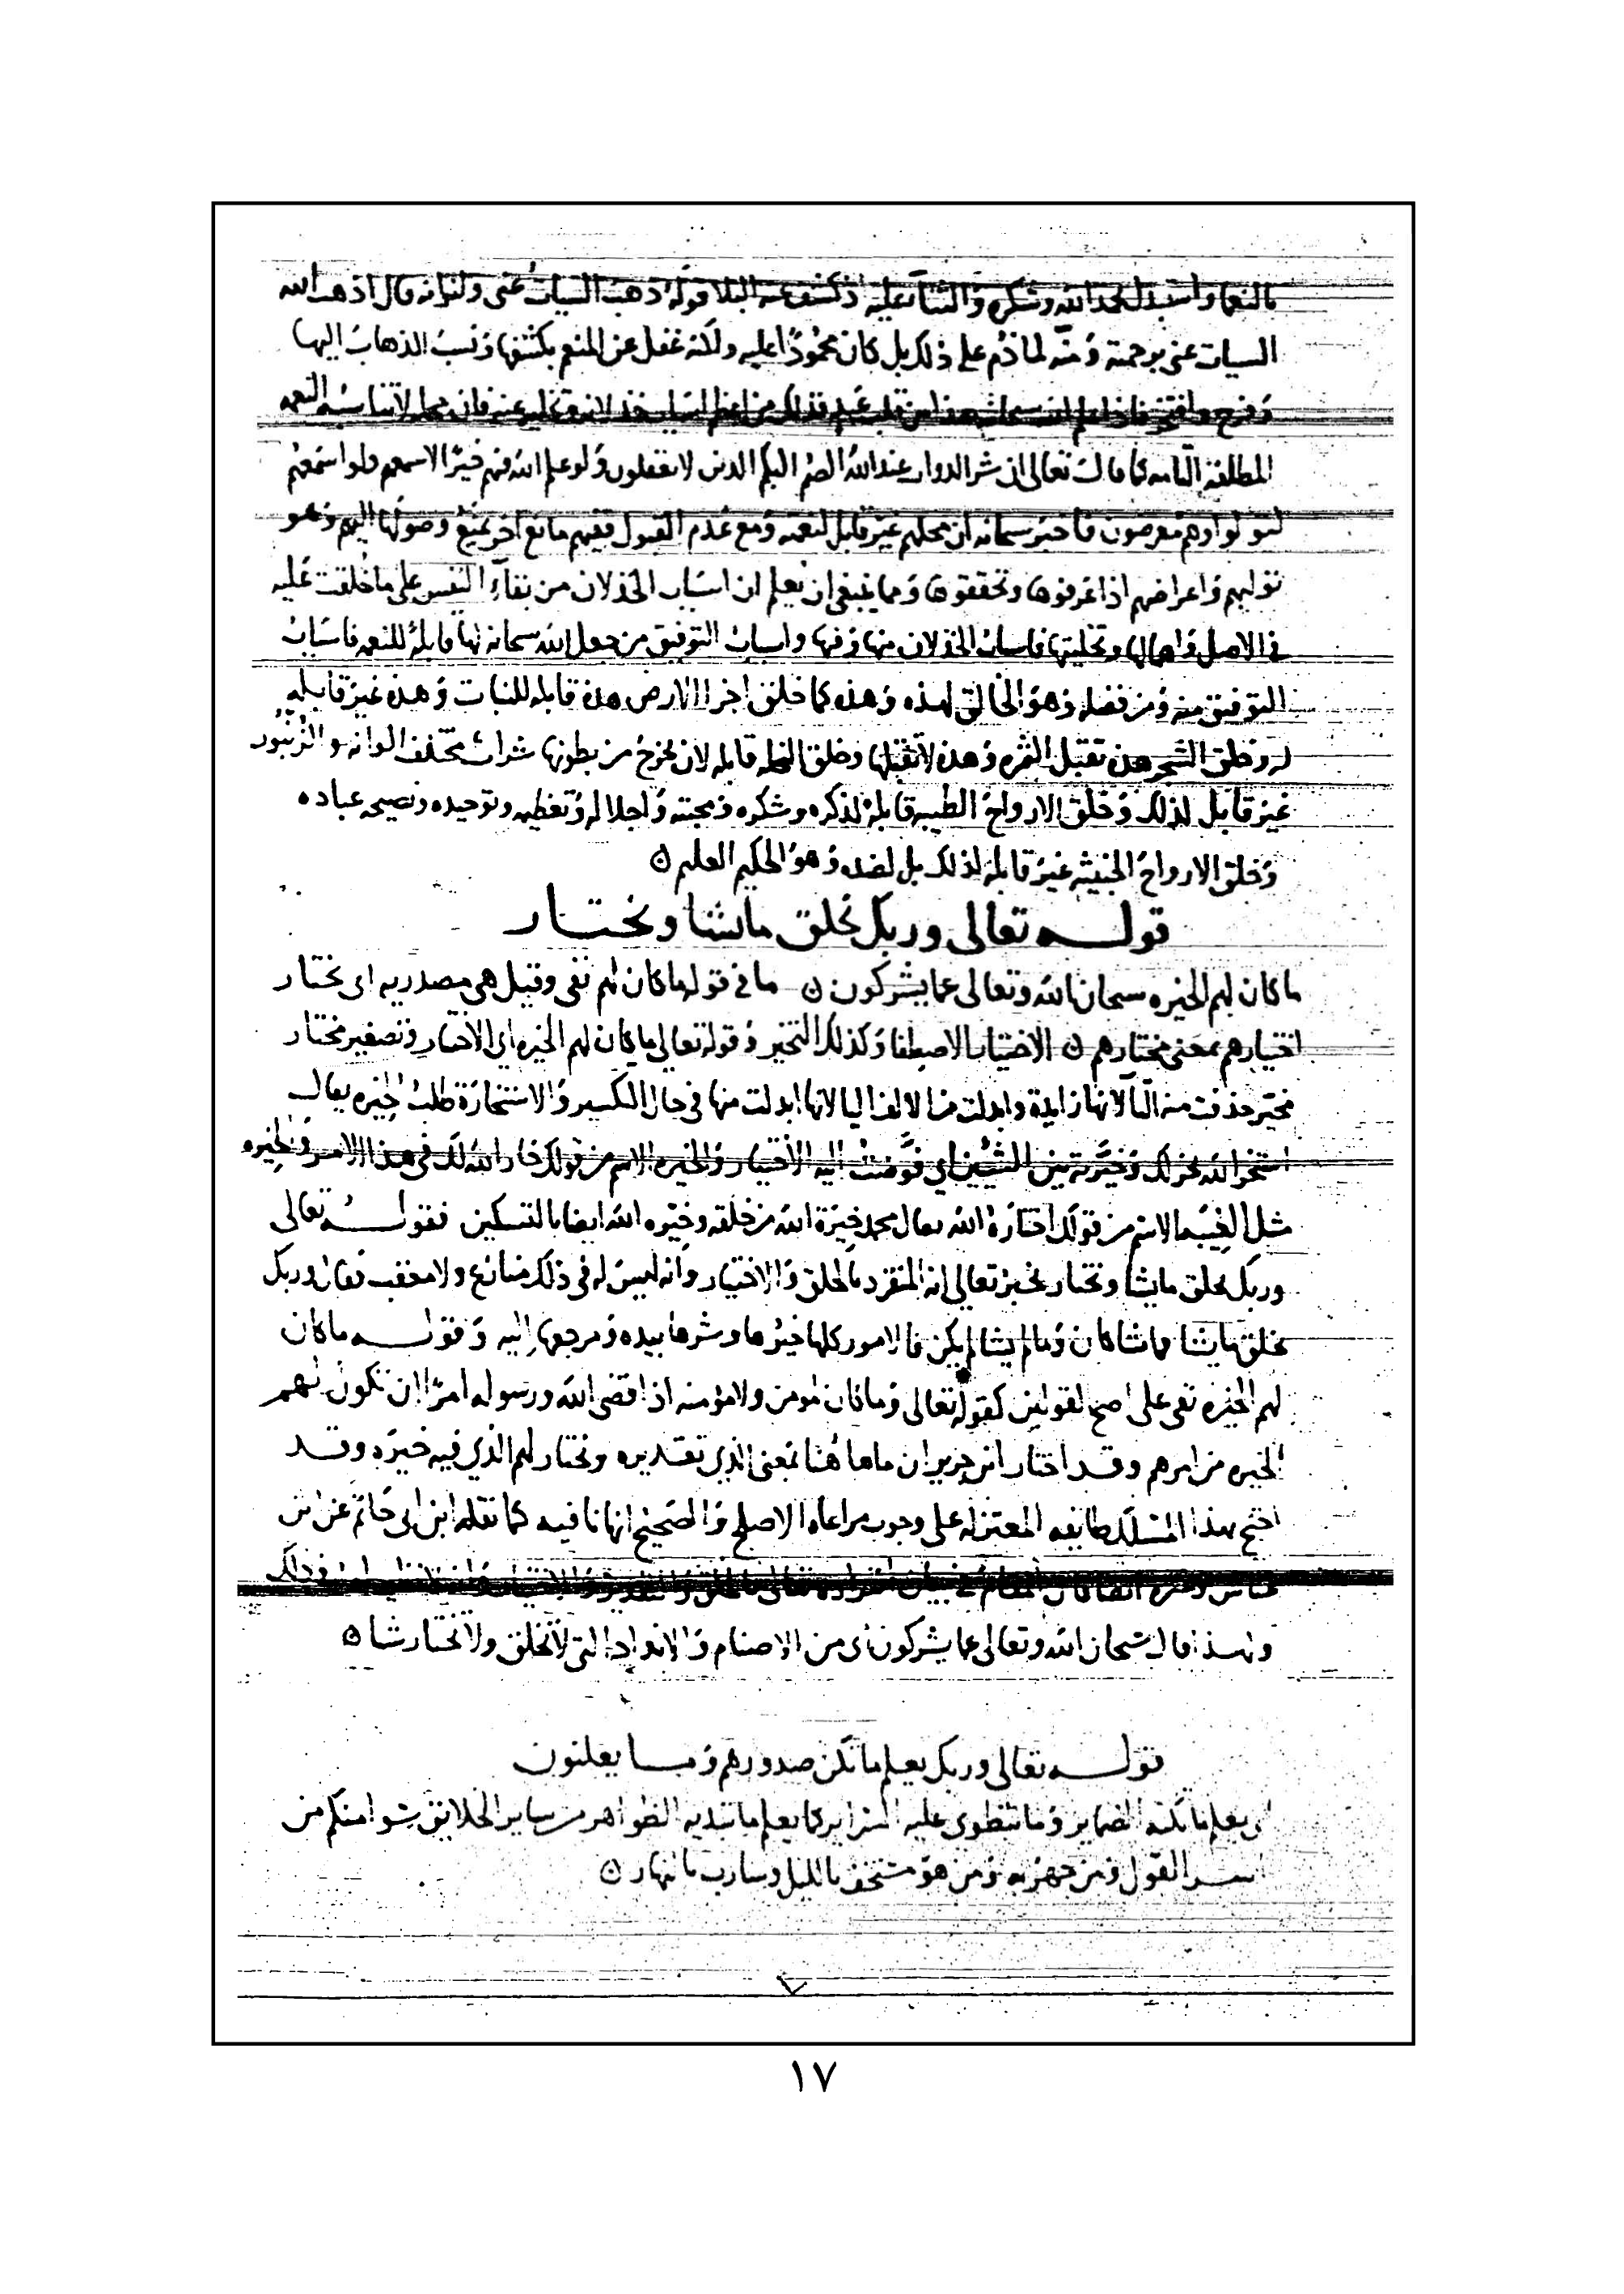 بالنعما واستبدل بحمد الله وشكره والثنا عليه اذ كشف عنه البلا قوله ذهب السيات عنى ولو انه قال اذهب الله
السيات عنى برحمته ومنه لما ذم على ذلك بل كان محمودا عليه ولكنه غفل عن المنعم بكشفها ونسب الذهاب اليها
وفرح وافتخر فاذا علم الله سبحانه هذا من قلب عبد فذلك من اعظم اسباب خذلانه وتخليه عنه فان محله لا تناسبه النعمه
المطلقة التامه كما قال تعالى ان شر الدواب عند الله الصم البكم الذين لا يعقلون ولو علم الله فيهم خيرًا لاسمعهم ولو اسمعهم
لتولوا وهم معرضون فاخبر سبحانه ان محلهم غير قابل لنعمته ومع عدم القبول ففيهم مانع اخر يمنع وصولها اليهم وهو
توليهم واعراضهم اذا عرفوها وتحققوها ومما ينبغى ان يعلم ان اسباب الخذلان من بقآء النفس على ما خلقت عليه
في الاصل واهمالها وتخليتها فاسباب الخذلان منها وفيها واسباب التوفيق من جعل الله سبحانه لها قابلة للنعمه فاسباب
التوفيق منه ومن فضله وهو الخالق لهذه وهذه كما خلق اجزا الارض هذه قابله للنبات وهذه غير قابله
له وخلق الشجر هذه تقبل الثمره وهذه لا تقبلها وخلق النحله قابله لان يخرج من بطونها شراب مختلف الوانه والزنبور
غير قابل لذلك وخلق الارواح الطيبه قابلة لذكره وشكره ومحبته واجلاله وتعظيمه وتوحيده ونصيحه عباده
وخلق الارواح الخبيثه غير قابلة لذلك بل لضده وهو الحكيم العليم
قوله تعالى وربك يخلق ما يشا ويختار
ما كان لهم الخيره سبحان الله وتعالى عما يشركون ما في قوله ما كان لهم نفى وقيل هى مصدريه اى يختار
اختيارهم بمعنى مختارهم الاختيار الاصطفا وكذلك التخير وقوله تعالى ما كان لهم الخيره اي الاختيار وتصغير مختار
مخير حذفت منه التآ لانها زايدة وابدلت من الالف اليا لانها ابدلت منها في حال التكسير والاستخارة طلب الخيره يقال
استخر الله يخر لك وخيرته بين الشيئين اي فوضت اليه الاختيار والخيره الاسم من قولك خار الله لك في هذا الامر والخيره
مثل العنبه الاسم من قولك اختاره الله يقال محمد خيرة الله من خلقه وخيره الله ايضا بالتسكين فقوله تعالى
وربك يخلق ما يشا ويختار يخبر تعالى انه المنفرد بالخلق والاختيار وانه ليس له في ذلك منازع ولا معقب فقال وربك
يخلق ما يشا فما شا كان وما لم يشا لم يكن فالامور كلها خيرها وشرها بيده ومرجعها اليه وقوله ما كان
لهم الخيره نفى على اصح القولين كقوله تعالى وما كان لمومن ولا مؤمنه اذا قضى الله ورسوله امرًا ان تكون لهم
الخيره من امرهم وقد اختار ابن جرير ان ما هاهنا بمعنى الذي تقديره ويختار لهم الذي فيه خيره وقد
احتج بهذا المسلك طايفه المعتزله على وجوب مراعاه الاصلح والصحيح انها نافيه كما نقله ابن ابي حاتم عن ابن
عباس وغيره ايضا فان المقام في بيان انفراده تعالى بالخلق والتقدير والاختيار وانه لا نظير له في ذلك
ولهذا قال سبحان الله وتعالى عما يشركون اى من الاصنام والانداد التي لا تخلق ولا تختار شيا
قوله تعالى وربك يعلم ما تكن صدورهم وما يعلنون
اى يعلم ما تكنه الضماير وما تنطوى عليه السراير كما يعلم ما تبديه الظواهر من ساير الخلايق سوا منكم من
اسر القول ومن جهر به ومن هو مستخف بالليل وسارب بالنهار
٧
١٧